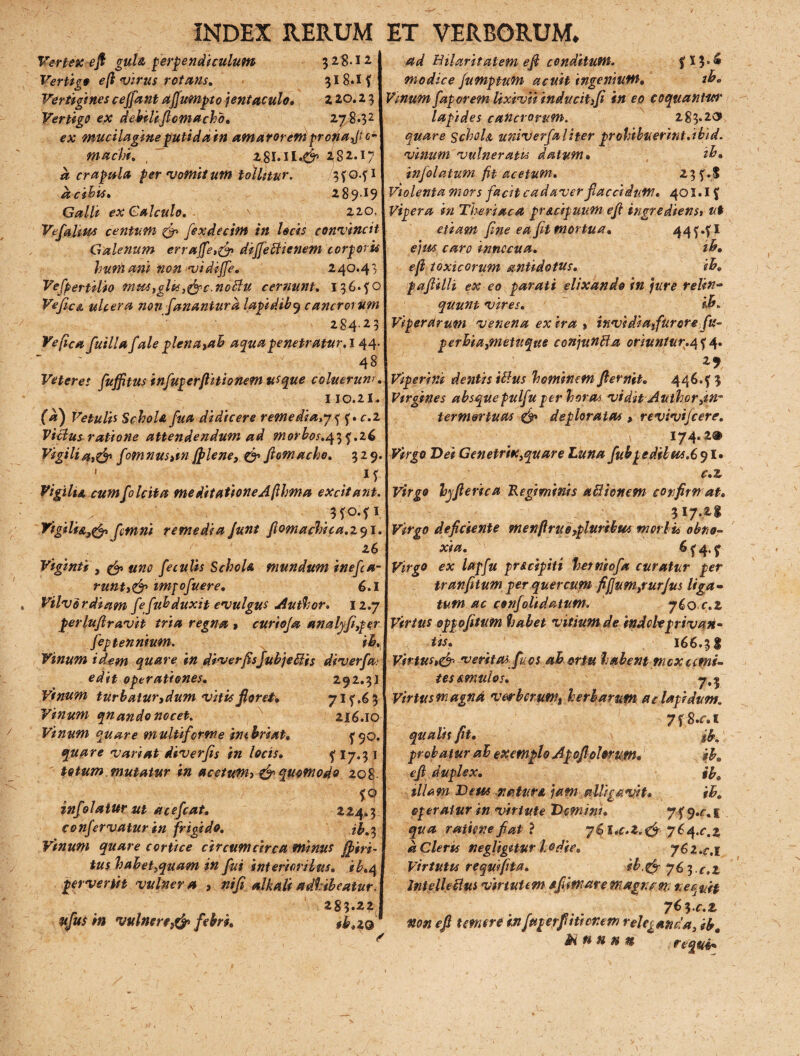 INDEX RERUM ET VERBORUM.
Vertex est gulæ perpendiculum 328.12
Vertigo est virus rotans. 318.15
Vertigines cessant assumpto jentaculo. 220.23
Vertigo ex debili stomacho. 278.32
ex mucilagine putida in amarorem prona, sto-
machi. 281.11.& 282.17
à crapula per vomitum tollitur. 350.51
à cibis. 289.19
Galli ex Calculo. 220.
Vesalius centum & sexdecim in locis convincit
Galenum errasse, & dissectionem corporis
humani non vidisse. 240.43
Vespertilio mus, glis, &c. noctu cernunt. 136.50
Vesicæ ulcera non sanantur à lapidibꝰ cancrorum
284.23
Vesica suilla sale plena, ab aqua penetratur. 144.
48
Veteres suffitus insuperstitionem usque coluerunt.
110.21.
(a) Vetulis Schola sua didicere remedia. 755. c.2
Victus ratione attendendum ad morbos. 435.26
Vigilia, & somnus, in splene, & stomacho. 329.
15
Vigilia cum solcita meditatione Asthma excitant.
350.51
Vigiliæ, & somni remedia sunt stomachica. 291.
26
Viginti, & uno seculis Schola mundum inesca-
runt, & imposuere. 6.1
Vilvordiam se subduxit evulgus Author. 12.7
perlustravit tria regna, curiosa analysi, per
septennium. ib.
Vinum idem quare in diversis subjectis diversa
edit operationes. 292.31
Vinum turbatur, dum vitis floret. 715.63
Vinum quando nocet. 216.10
Vinum quare multiforme inebriat. 590.
quare variat diversis in locis. 517.31
totum mutatur in acetum, & quomodo 208.
50
insolatur ut acescat. 224.3
conservatur in frigido. ib.3
Vinum quare cortice circum circa minus spiri-
tus habet, quam in sui interioribus. ib.4
pervertit vulnera, nisi alkali adhibeatur.
283.22
usus in vulnere, & febri. ib.20
ad Hilaritatem est conditum. 513.6
modice sumptum acuit ingenium. ib.
Vinum saporem lixivii inducit, si in eo coquantur
lapides cancrorum. 283.20
quare Schola universaliter prohibuerint. ibid.
vinum vulneratis datum. ib.
insolatum fit acetum. 235.8
Violenta mors facit cadaver flaccidum. 401.15
Vipera in Theriaca præcipuum est ingrediens, ut
etiam sine ea sit mortua. 445.51
ejus caro innocua. ib.
est toxicorum antidotus. ib.
pastilli ex eo parati elixando in jure relin-
quunt vires. ib.
Viperarum venena ex ira, invidia, furore su-
perbia, metuque conjuncta oriuntur. 454.
29
Viperini dentis ictus hominem sternit. 446.53
Virgines absque pulsu per horas vidit Author, in-
termortuas & deploratas, reviviscere.
174.20
Virgo Dei Genetrix, quare Luna sub pedibus. 691.
c.2
Virgo hysterica Regiminis actionem confirmat.
317.28
Virgo deficiente menstruo, pluribus morbis obno-
xia. 654.5
Virgo ex lapsu præcipiti herniosa curatur per
transitum per quercum fissum, rursus liga-
tum ac consolidatum. 760.c.2
Virtus oppositum habet vitium de indole privan-
tis. 166.38
Virtus, & veritas suos ab ortu habent mox comi-
tes æmulos. 7.3
Virtus magna verborum, herbarum ac lapidum.
758.c.1
qualis sit. ib.
probatur ab exemplo Apostolorum. ib.
est duplex. ib.
illam Deus natura jam alligavit. ib.
operatur in virtute Domini. 759.c.1
qua ratione fiat? 761.c.2. & 764.c.2
à Cleris negligitur hodie. 762.c.1
Virtutis requisita. ib. & 763.c.2
Intellectus virtutem æstimare magnam nequit
763.c.2
non est temere in superstitionem releganda, ib.
Nnnnn requi-